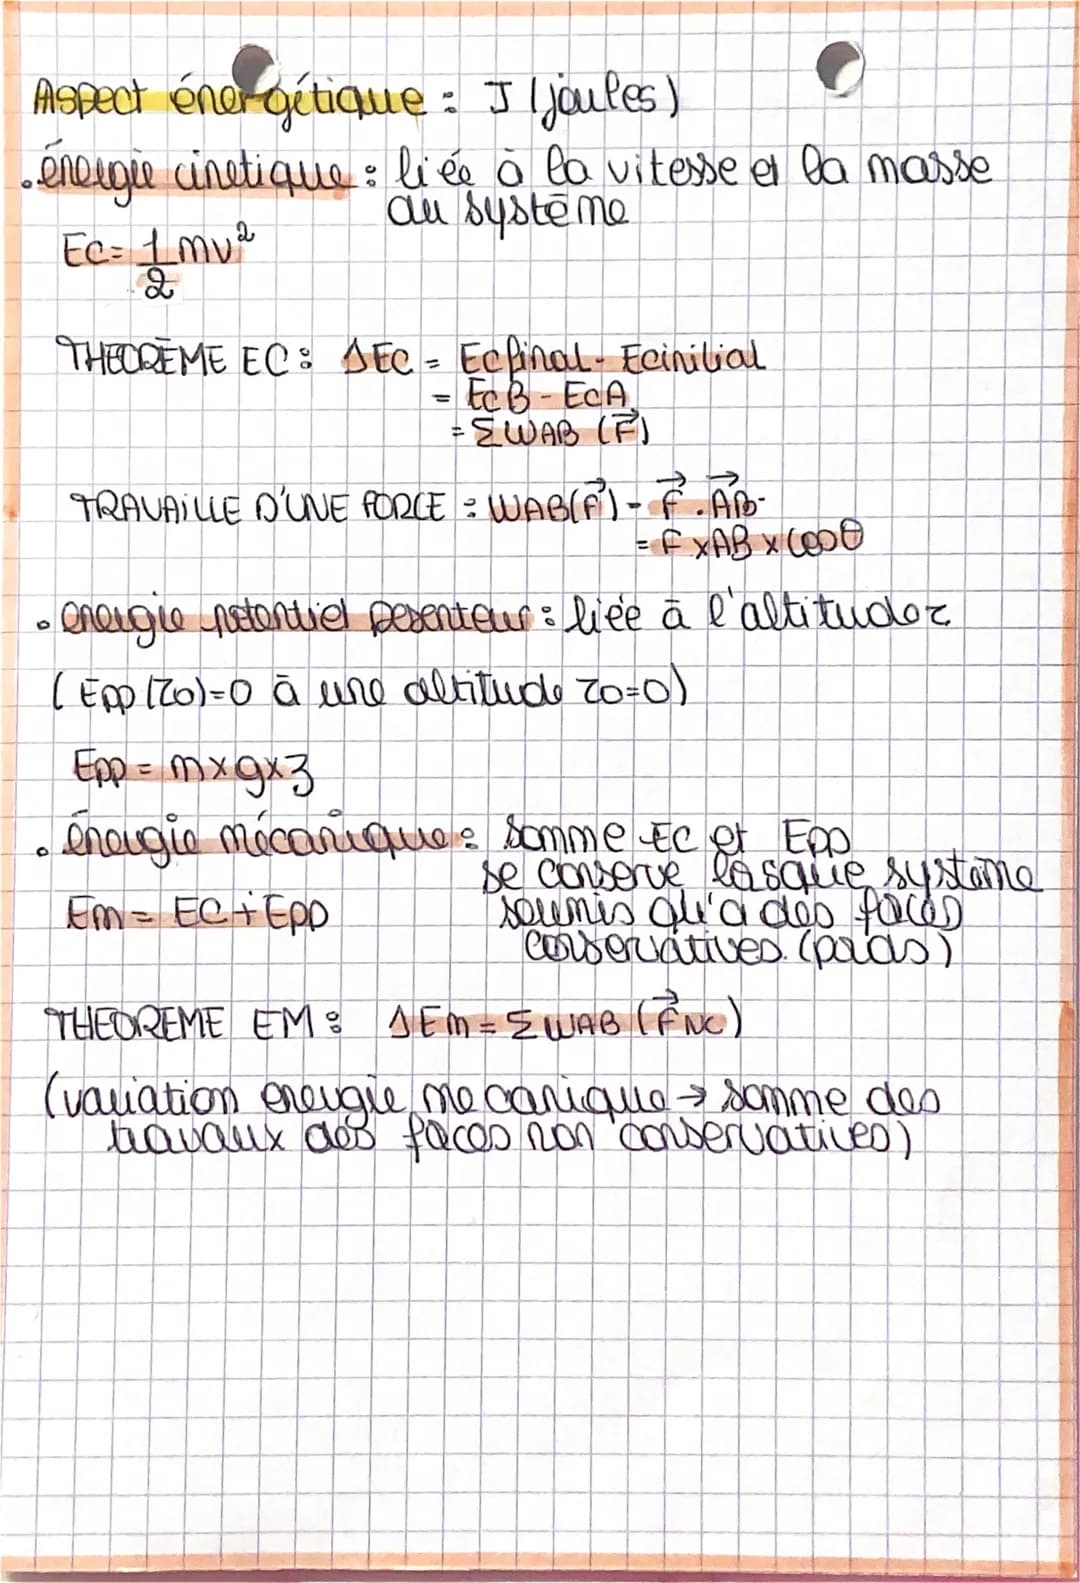 Aspect énergétique : J (joules)
• énergie cinetique : liée à la vitesse et la masse
du système
Ec = 1/2 mv²
THEORÈME EC : ΔEC = Ecfinal - Ecinitial
= EcB - EcA
= ΣWAB (F⃗)
TRAVAILLE D'UNE FORCE : WAB(F⃗) = F⃗ . AB⃗
= F x AB x cosθ
• energie potentiel pesenteur : liée à l'altitude z
(Epp (z0)=0 à une altitude z0=0)
Epp = m x g x z
• énergie mécanique : somme EC et Epp
se conserve lorsque système
Em = EC + Epp
soumis qu'a des forces
conservatives. (poids)
THEOREME EM : ΔEm = ΣWAB (F⃗NC)
(variation energie mecanique → somme des
travaux des forces non conservatives)